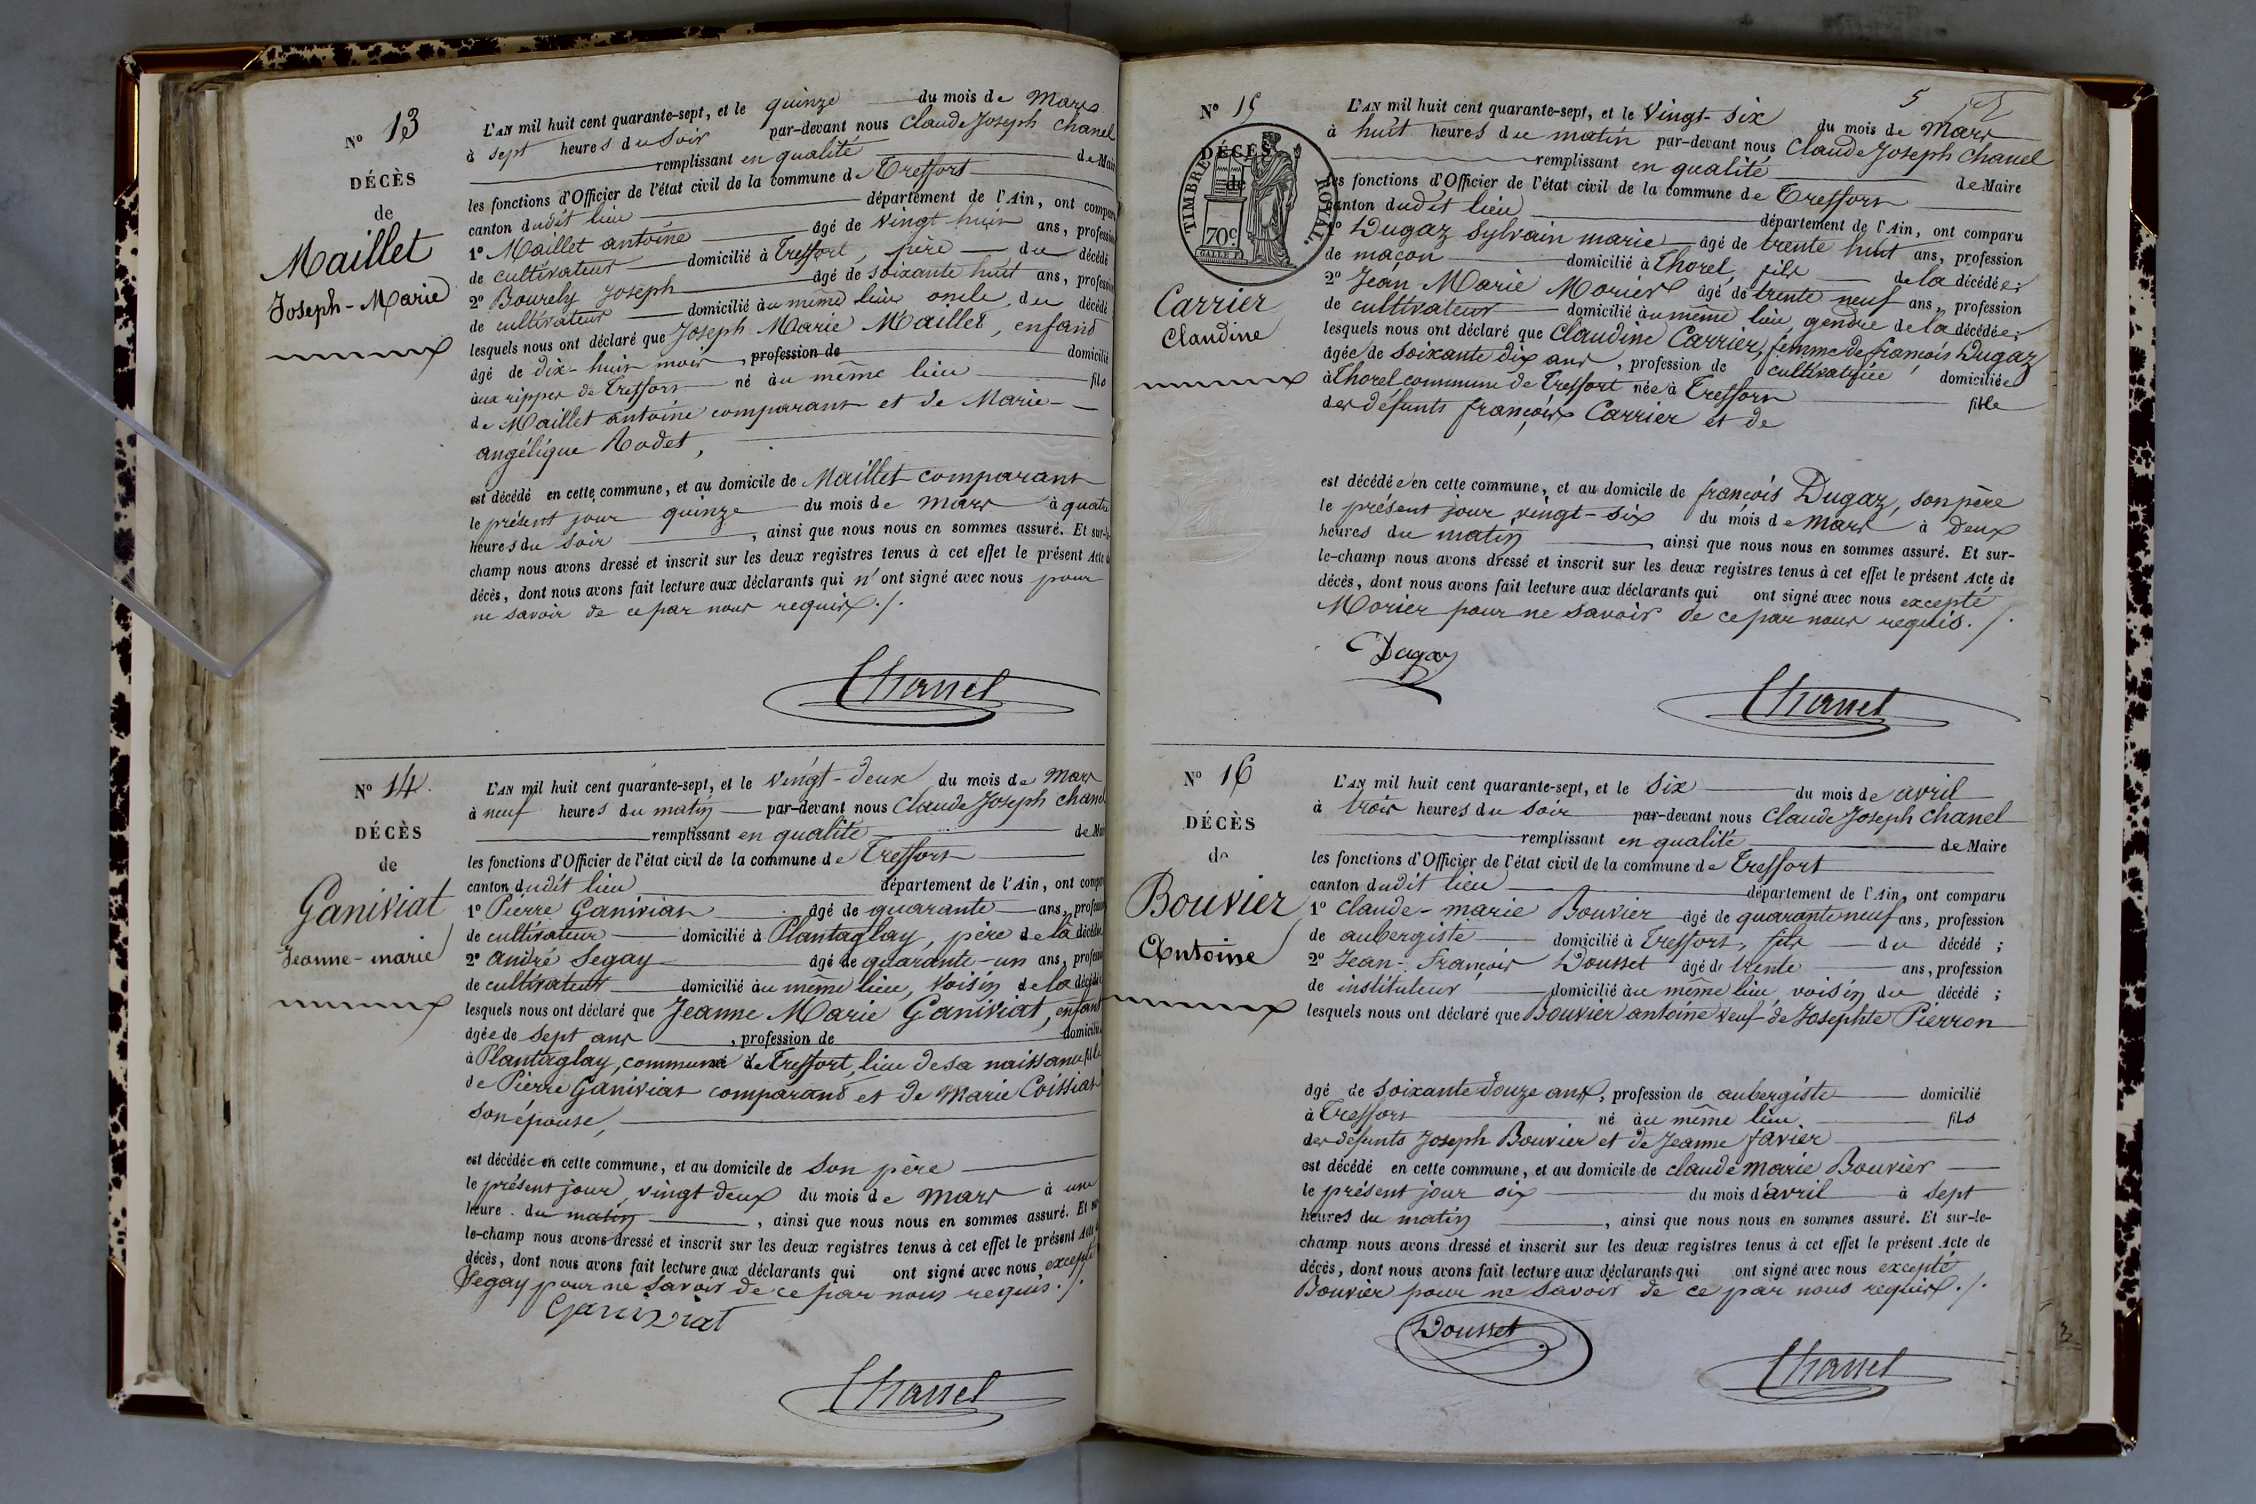 N° 13
DÉCÈS
de
Maillet
Joseph-Marie
L'AN mil huit cent quarante-sept, et le quinze du mois de Mars
à sept heures du Soir par-devant nous Claude Joseph Chanel
remplissant en qualité de Maire
les fonctions d'Officier de l'état civil de la commune de Treffort
canton dudit lieu département de l'Ain, ont comparu
1° Maillet antoine âgé de vingt huit ans, profession
de cultivateur domicilié à Treffort, père du décédé
2° Bourely Joseph âgé de soixante huit ans, profession
de cultivateur domicilié au même lieu oncle du décédé
lesquels nous ont déclaré que Joseph Marie Maillet, enfant
âgé de dix-huit mois, profession de domicilié
aux rippes de Treffort né au même lieu fils
de Maillet antoine comparant et de Marie-
angélique Rodet,
est décédé en cette commune, et au domicile de Maillet comparant
le présent jour quinze du mois de mars à quatre
heures du soir, ainsi que nous nous en sommes assuré. Et sur-le-
champ nous avons dressé et inscrit sur les deux registres tenus à cet effet le présent Acte de
décès, dont nous avons fait lecture aux déclarants qui n'ont signé avec nous pour
ne savoir de ce par nous requis./.
Chanel
N° 14.
DÉCÈS
de
Ganiviat
Jeanne-marie
L'AN mil huit cent quarante-sept, et le vingt-deux du mois de Mars
à neuf heures du matin par-devant nous Claude Joseph chanel
remplissant en qualité de Maire
les fonctions d'Officier de l'état civil de la commune de Treffort
canton dudit lieu département de l'Ain, ont comparu
1° Pierre Ganiviat âgé de quarante ans, profession
de cultivateur domicilié à Plantaglay, père de la décédée
2° andré Segay âgé de quarante-un ans, profession
de cultivateur domicilié au même lieu, Voisin de la décédée
lesquels nous ont déclaré que Jeanne Marie Ganiviat, enfant
âgée de sept ans, profession de domiciliée
à Plantaglay, commune de Treffort, lieu de sa naissance fille
de Pierre Ganiviat comparant et de Marie Coissiat
son épouse,
est décédée en cette commune, et au domicile de son père
le présent jour vingt deux du mois de mars à une
heure du matin, ainsi que nous nous en sommes assuré. Et sur-
le-champ nous avons dressé et inscrit sur les deux registres tenus à cet effet le présent Acte de
décès, dont nous avons fait lecture aux déclarants qui ont signé avec nous excepté
Segay pour ne savoir de ce par nous requis./.
Ganiviat
Chanel
5
N° 15
DÉCÈS
de
TIMBRE ROYAL.
70c.
Carrier
Claudine
L'AN mil huit cent quarante-sept, et le Vingt-six du mois de Mars
à huit heures du matin par-devant nous Claude Joseph Chanel
remplissant en qualité de Maire
les fonctions d'Officier de l'état civil de la commune de Treffort
canton dudit lieu département de l'Ain, ont comparu
1° Dugaz Sylvain marie âgé de trente huit ans, profession
de maçon domicilié à Thorel, fils de la décédée;
2° Jean Marie Morier âgé de trente neuf ans, profession
de cultivateur domicilié au même lieu, gendre de la décédée;
lesquels nous ont déclaré que Claudine Carrier, femme de françois Dugaz
âgée de soixante dix ans, profession de cultivatrice domiciliée
à Thorel commune de Treffort née à Treffort fille
des défunts françois Carrier et de
est décédée en cette commune, et au domicile de françois Dugaz, son père
le présent jour vingt-six du mois de Mars à deux
heures du matin, ainsi que nous nous en sommes assuré. Et sur-
le-champ nous avons dressé et inscrit sur les deux registres tenus à cet effet le présent Acte de
décès, dont nous avons fait lecture aux déclarants qui ont signé avec nous excepté
Morier pour ne savoir de ce par nous requis./.
Dugaz
Chanel
N° 16
DÉCÈS
de
Bouvier
Antoine
L'AN mil huit cent quarante-sept, et le six du mois de avril
à trois heures du soir par-devant nous Claude Joseph chanel
remplissant en qualité de Maire
les fonctions d'Officier de l'état civil de la commune de Treffort
canton dudit lieu département de l'Ain, ont comparu
1° claude-marie Bouvier âgé de quarante neuf ans, profession
de aubergiste domicilié à Treffort, fils du décédé;
2° Jean-françois Dousset âgé de trente ans, profession
de instituteur domicilié au même lieu, voisin du décédé;
lesquels nous ont déclaré que Bouvier antoine veuf de Josephte Pierron
âgé de soixante douze ans, profession de aubergiste domicilié
à Treffort né au même lieu fils
des défunts Joseph Bouvier et de Jeanne favier
est décédé en cette commune, et au domicile de claude marie Bouvier
le présent jour six du mois d'avril à sept
heures du matin, ainsi que nous nous en sommes assuré. Et sur-le-
champ nous avons dressé et inscrit sur les deux registres tenus à cet effet le présent Acte de
décès, dont nous avons fait lecture aux déclarants qui ont signé avec nous excepté
Bouvier pour ne savoir de ce par nous requis./.
Dousset
Chanel